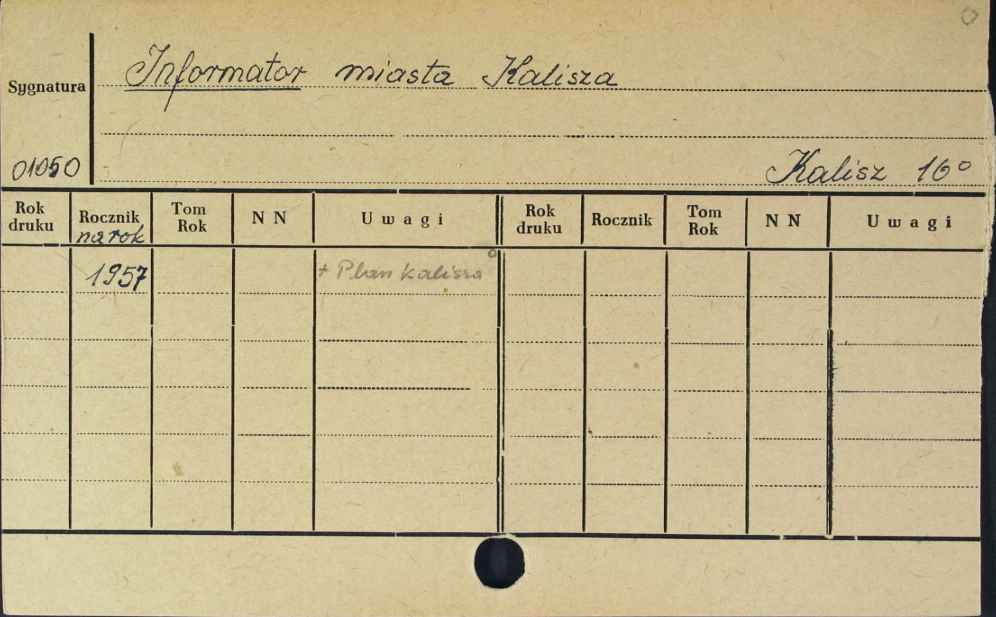 Informator miasta Kalisza
Sygnatura
01050
Kalisz 16°
Rok druku Rocznik na rok Tom Rok N N Uwagi Rok druku Rocznik Tom Rok N N Uwagi
1957 + Plan kalisza